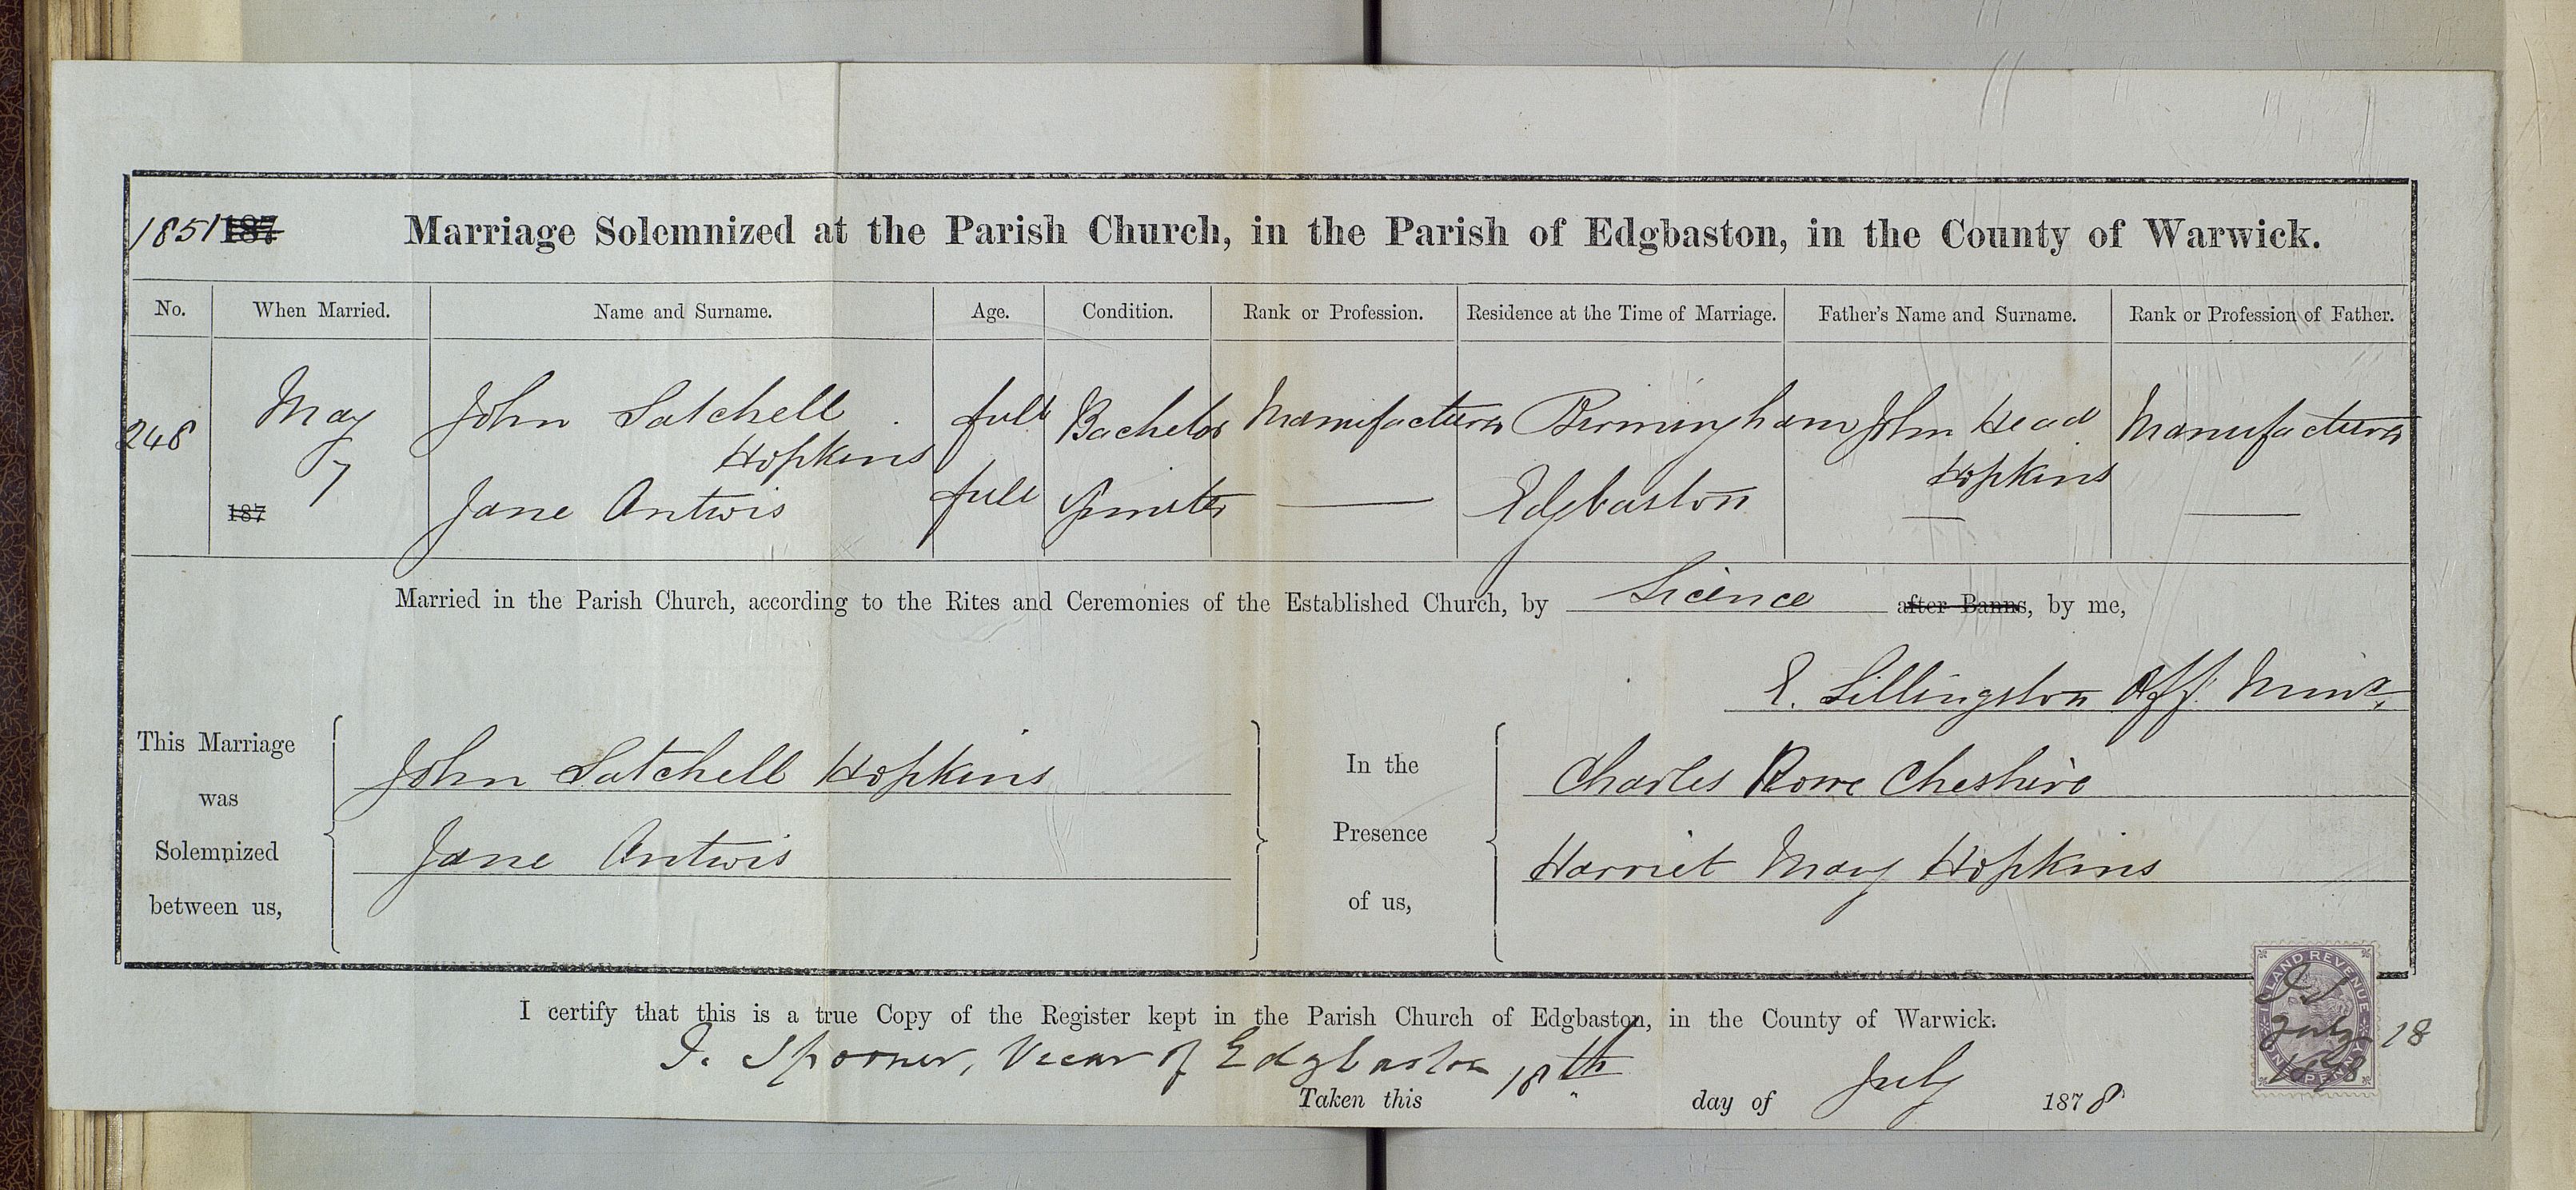 1851 187 Marriage Solemnized at the Parish Church, in the Parish of Edgbaston, in the County of Warwick.
No. When Married. Name and Surname. Age. Condition. Rank or Profession. Residence at the Time of Marriage. Father's Name and Surname. Rank or Profession of Father.
248 May 7 187
John Satchell Hopkins full Bachelor Manufacturer Birmingham John Head Hopkins Manufacturer
Jane Antwis full Spinster — Edgbaston — —
Married in the Parish Church, according to the Rites and Ceremonies of the Established Church, by Licence after Banns, by me,
E. Lillingston Off. Minr.
This Marriage
was
Solemnized
between us,
John Satchell Hopkins
Jane Antwis
In the
Presence
of us,
Charles Rowe Cheshire
Harriet Mary Hopkins
I certify that this is a true Copy of the Register kept in the Parish Church of Edgbaston, in the County of Warwick.
I. Spooner, Vicar of Edgbaston
Taken this 18th day of July 1878
INLAND REVENUE
ONE PENNY
I S
July 18
1878